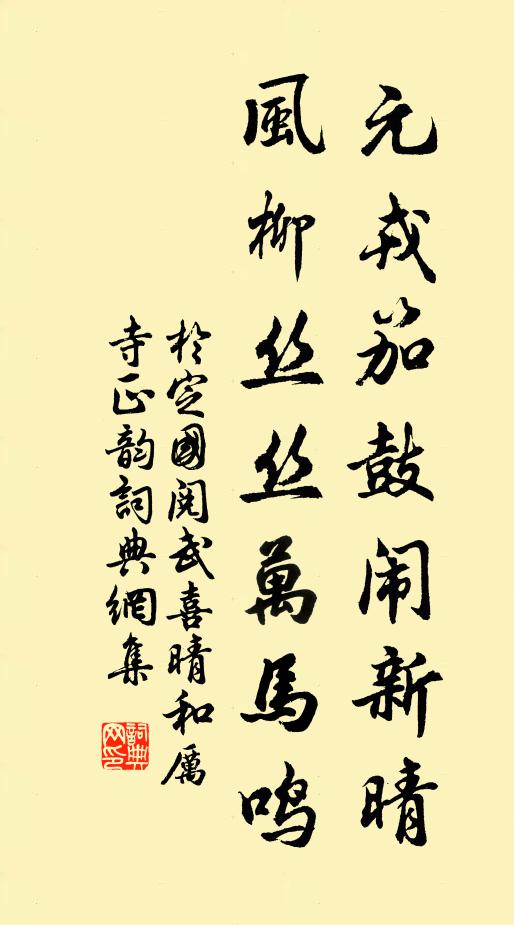 元戎笳鼓闹新晴
風柳丝丝萬馬鸣
於定國阅武喜晴和厲
寺正韵詞典網集
詞典网印